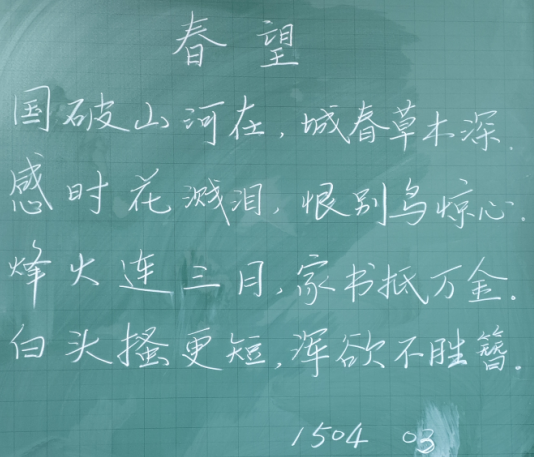 春望
国破山河在,城春草木深.
感时花溅泪,恨别鸟惊心.
烽火连三月,家书抵万金.
白头搔更短,浑欲不胜簪.
1504 03